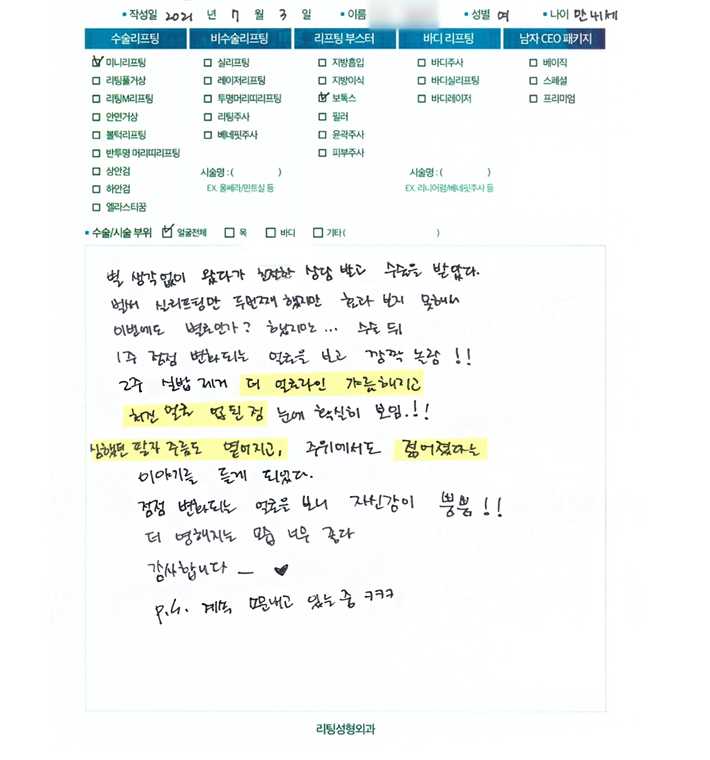 작성일 2021 년 7 월 3 일 이름 성별 여 나이 만41세
수술리프팅 비수술리프팅 리프팅 부스터 바디 리프팅 남자 CEO 패키지
미니리프팅 실리프팅 지방흡입 바디주사 베이직
리팅풀거상 레이저리프팅 지방이식 바디실리프팅 스페셜
리팅M리프팅 투명머리띠리프팅 보톡스 바디레이저 프리미엄
안면거상 리팅주사 필러
볼턱리프팅 베네핏주사 윤곽주사
반투명 머리띠리프팅 피부주사
상안검 시술명 : ( ) 시술명 : ( )
하안검 EX. 울쎄라/민트실 등 EX. 리니어펌/베네핏주사 등
엘라스티꿈
수술/시술 부위 얼굴전체 목 바디 기타 ( )
별 생각없이 왔다가 친절한 상담 받고 수술을 받았다.
벌써 실리프팅만 두번째 했지만 효과 보지 못해서
이번에도 별로인가? 했지만... 수술 뒤
1주 점점 변화되는 얼굴을 보고 깜짝 놀람!!
2주 실밥 제거 더 얼굴라인 갸름해지고
처진 얼굴 업된 점 눈에 확실히 보임.!!
심했던 팔자 주름도 옅어지고, 주위에서도 젊어졌다는
이야기를 듣게 되었다.
점점 변화되는 얼굴을 보니 자신감이 뿜뿜!!
더 영해지는 모습 너무 좋다
감사합니다 _ ♥
P.S. 계속 뽐내고 있는 중 ㅋㅋㅋ
리팅성형외과